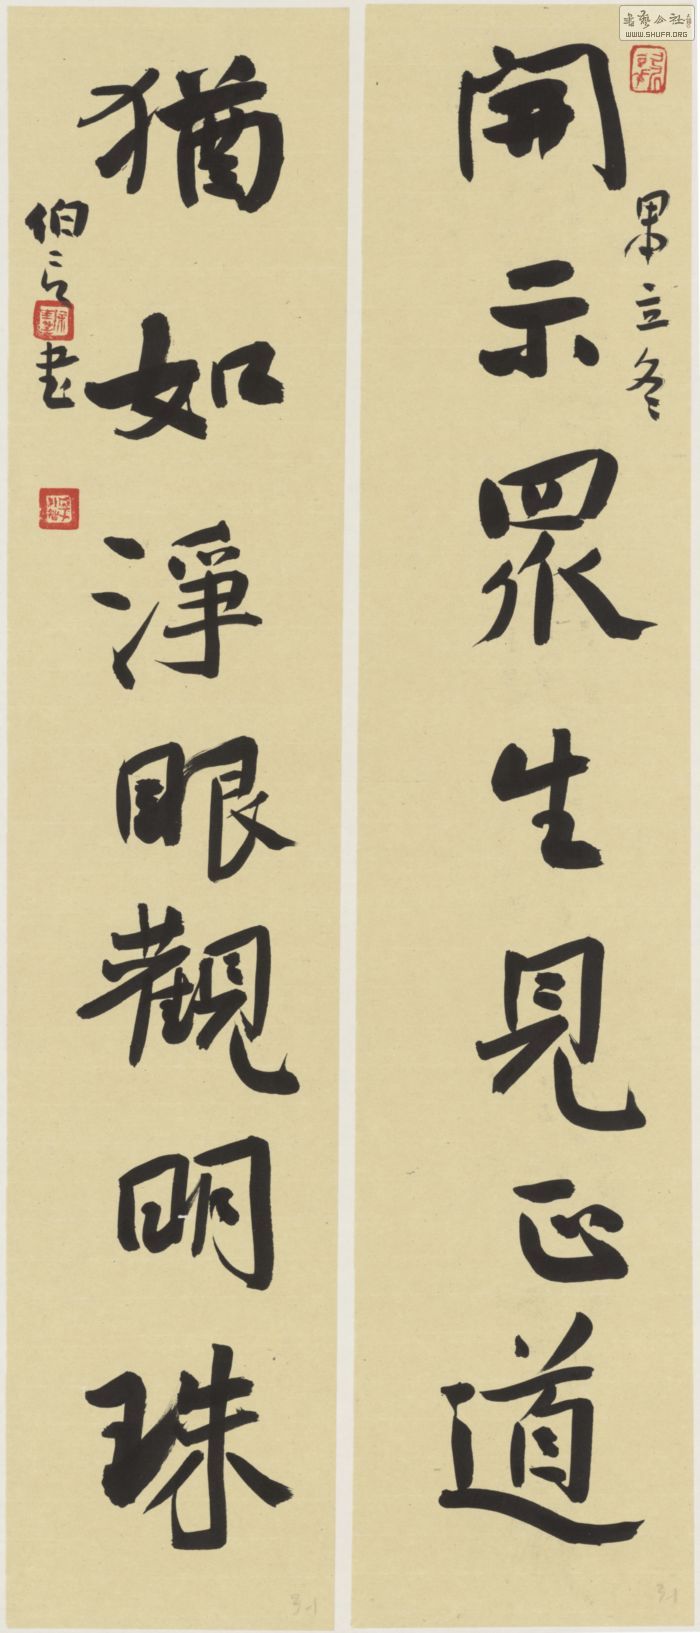 開示眾生見正道
立冬
猶如淨眼觀明珠
伯言書
WWW.SHUFA.ORG